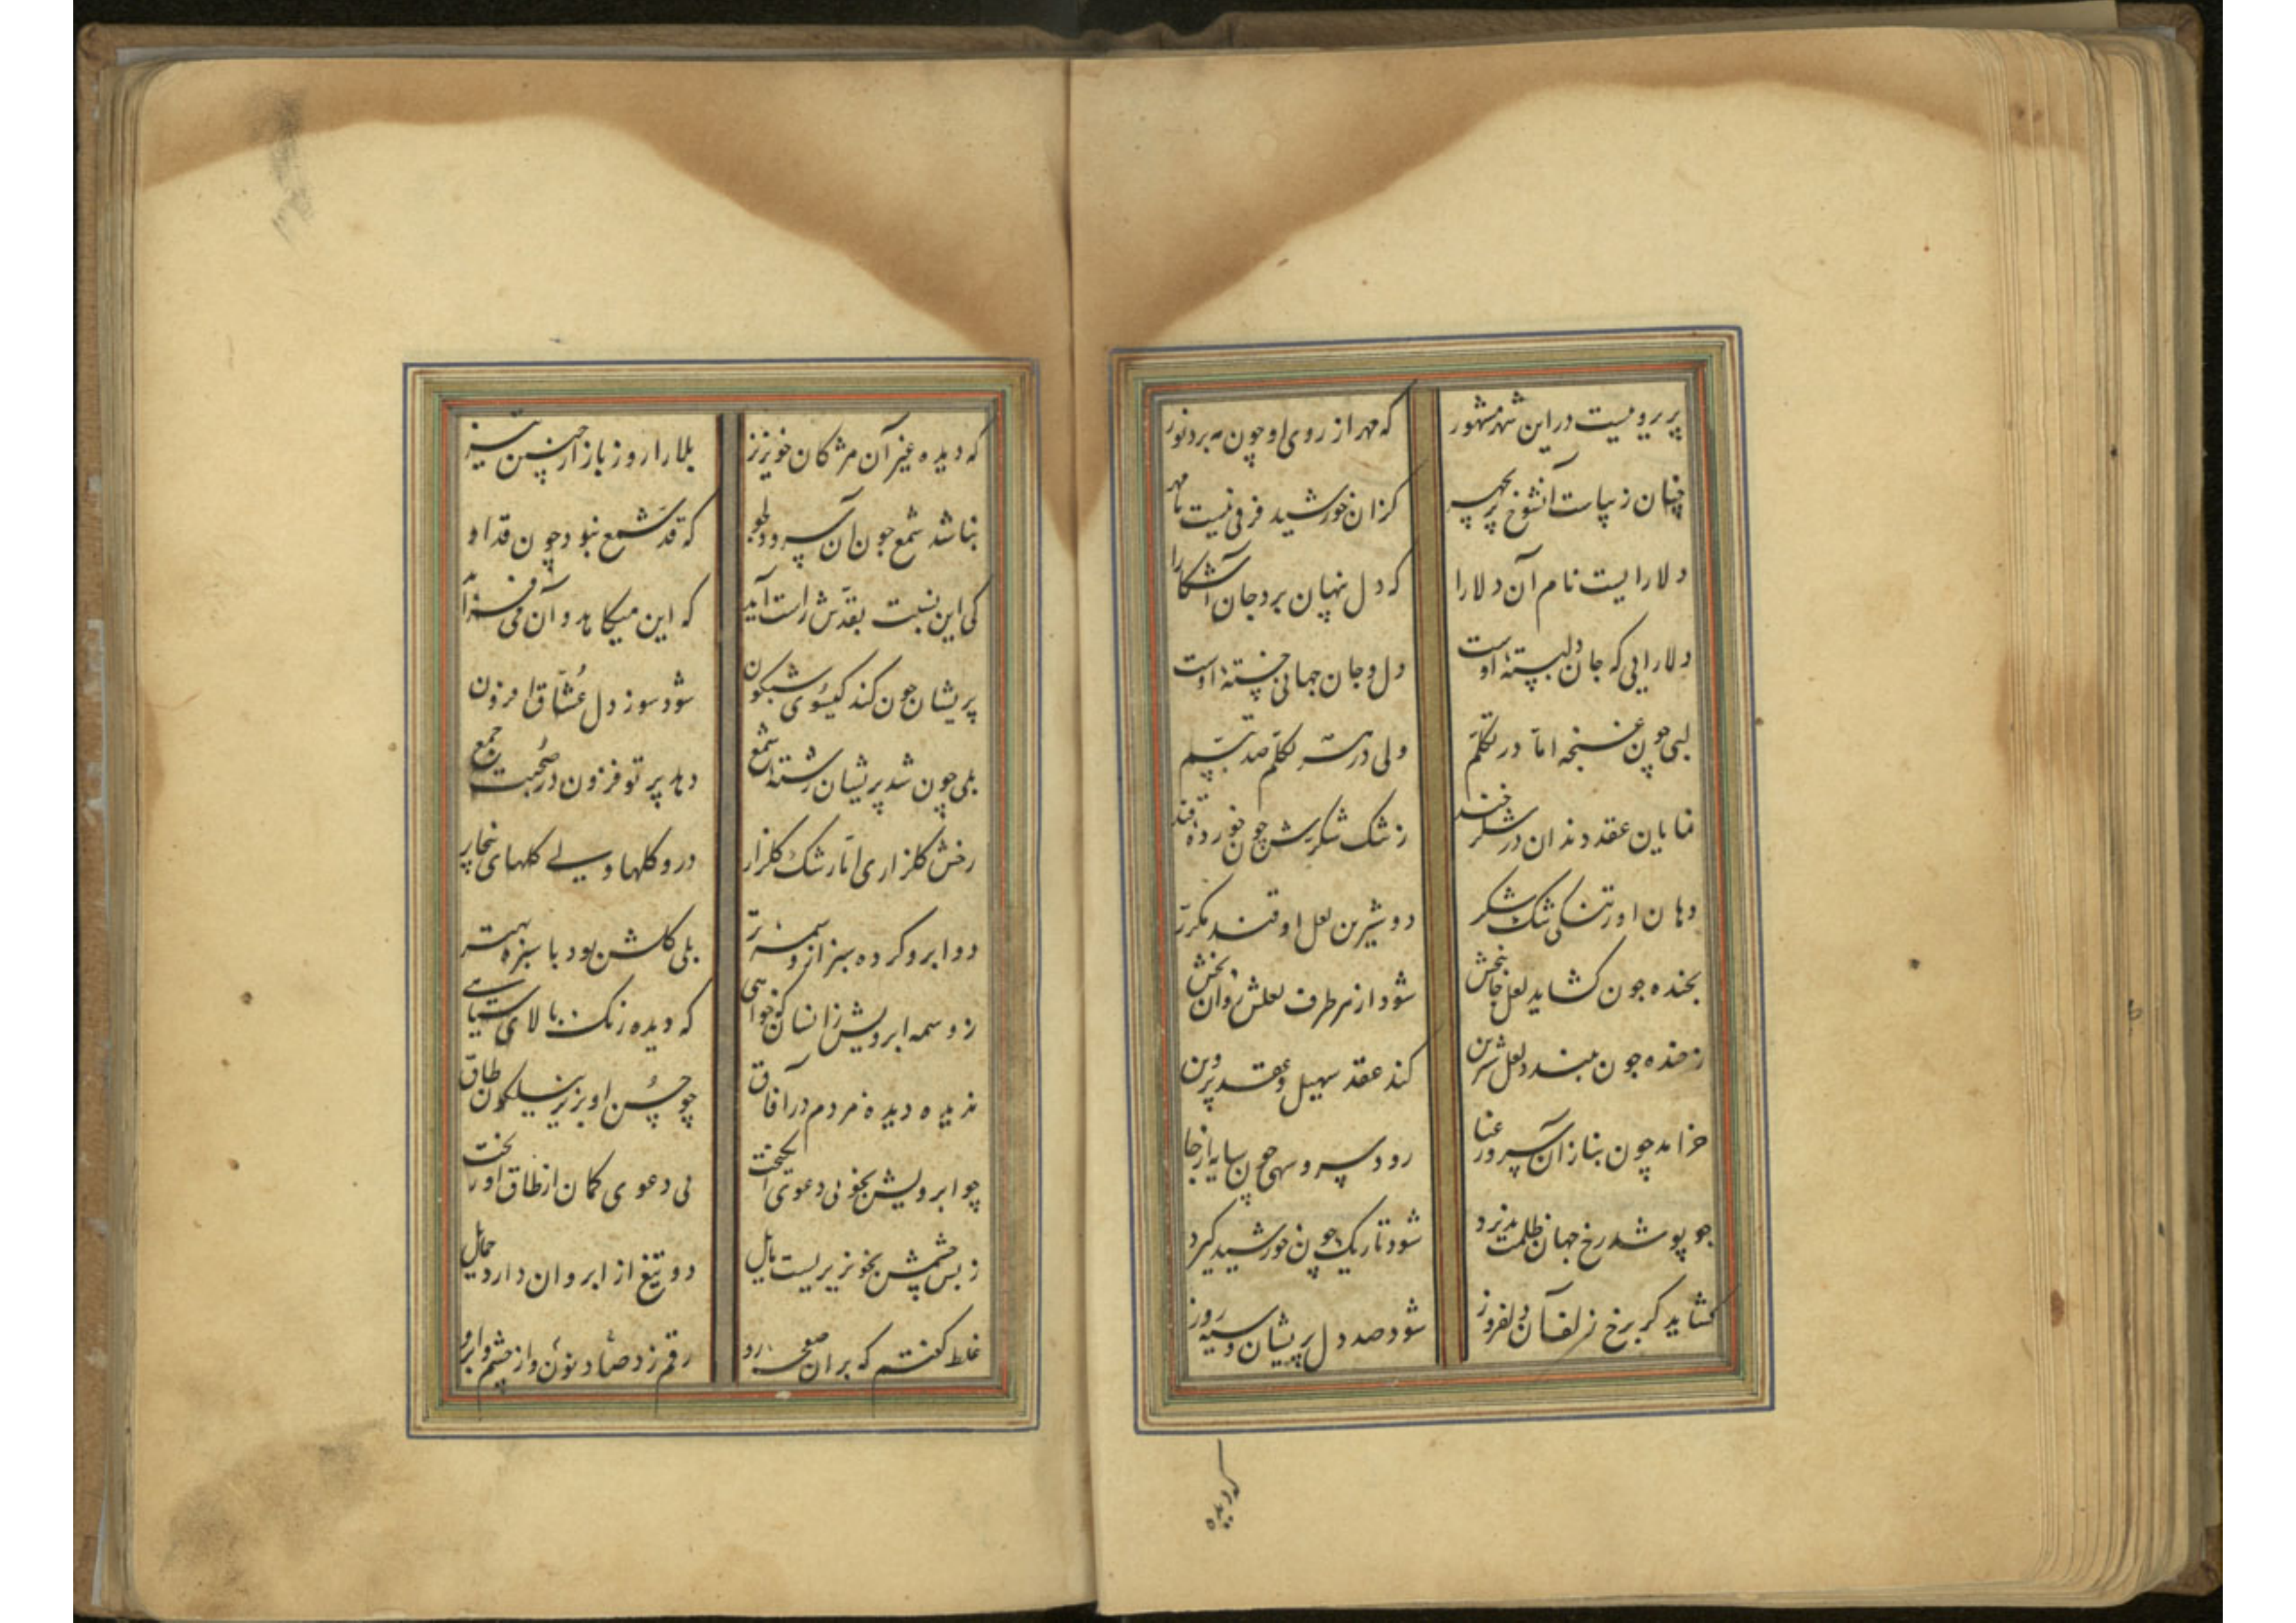 پریرویست در این شهر مشهور که مهر از روی او چون مه برد نور
چنان زیباست آنشوخ پریچهر کزان خورشید فرقی نیست تا مهر
دلارایست نام آن دلارا که دل پنهان برد جان آشکارا
دلارایی که جان دلبستهٔ اوست دل و جان جهانی خستهٔ اوست
لبی چون غنچه اما در تکلّم ولی در هر تکلّم صد تبسّم
نمایان عقد دندان در شکرخند ز شک شکرش خون خورده قند
دهان او ز تنگی تنگ شکر دو شیرین لعل او قند مکرّر
بخنده چون کشاید لعل جانبخش شود از هر طرف لعلش روان بخش
ز خنده چون ببندد لعل شیرین کند عقد سهیل و عقد پروین
خرامد چون بناز آن سرو رعنا رود سرو سهی چون سایه از جا
چو پوشد رخ جهان ظلمت پذیرد شود تاریک چون خورشید گیرد
کشاید کر بر رخ زلف آن دلفروز شود صد دل پریشان و سیه روز
که دیده
که دیده غیر آن مژکان خونریز بلا را روز بازار چنین تیز
بناشد شمع چون آن سرو دلجو که قد شمع نبود چون قد او
کی این نسبت بقدّش راست آید که این میکاهد و آن می فزاید
پریشان چون کند کیسوی شبکون شود سوز دل عُشّاق افزون
بلی چون شد پریشان رشتهٔ شمع دهد پرتو فزون در صُحبت جمع
رخش کلزاری امّا رشک کلزار درو کلها ولے کلهای بیخار
دو ابرو کرده سبز از وسمهٔ تر بلی کلشن بود با سبزه بهتر
ز وسمه ابرویش زانسان که خواهی که دیده رنک بالای سیاهے
ندیده دیدهٔ مردم در آفاق چو حُسن او بزیر نیلکون طاق
چو ابرویش بخوبی دعوی انکیخت پی دعوی کمان از طاق آویخت
ز بس چشمش بخونریزیست مایل دو تیغ از ابروان دارد حمایل
غلط کفتم که بر آن صفحهٔ رو رقم زد صاد و نون از چشم و ابرو